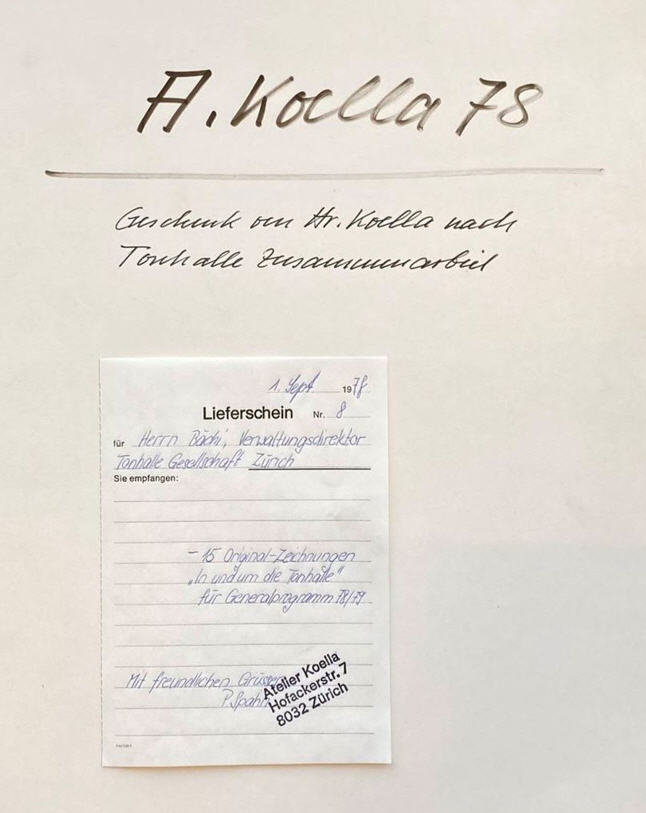 A. Koella 78
Geschenk von Hr. Koella nach
Tonhalle Zusammenarbeit
1. Sept. 1978
Lieferschein Nr. 8
für Herrn Bächi, Verwaltungsdirektor
Tonhalle Gesellschaft Zürich
Sie empfangen:
- 15 Original-Zeichnungen
"In und um die Tonhalle"
für Generalprogramm 78/79
Mit freundlichen Grüssen
P. Spahn
Atelier Koella
Hofackerstr. 7
8032 Zürich